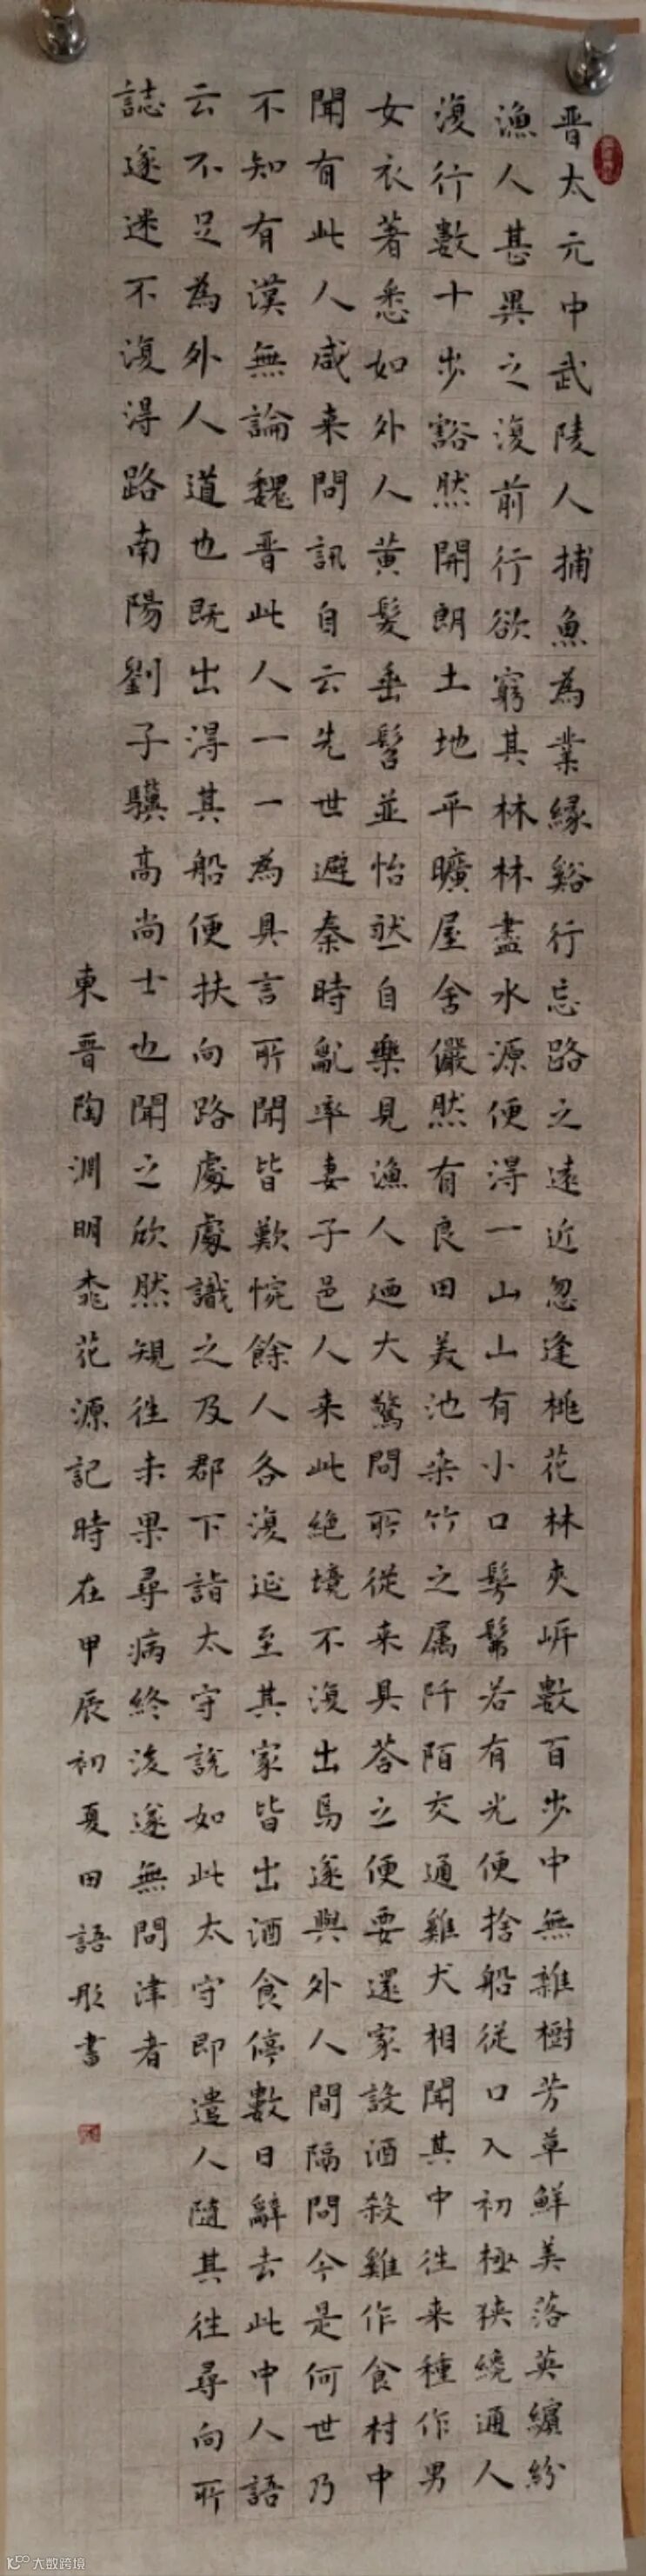 晋太元中武陵人捕魚為業緣谿行忘路之遠近忽逢桃花林夾岸數百步中無雜樹芳草鮮美落英繽紛
漁人甚異之復前行欲窮其林林盡水源便得一山山有小口髣髴若有光便捨船從口入初極狹纔通人
復行數十步豁然開朗土地平曠屋舍儼然有良田美池桑竹之属阡陌交通雞犬相聞其中往来種作男
女衣著悉如外人黄髮垂髫並怡然自樂見漁人迺大驚問所從来具答之便要還家設酒殺雞作食村中
聞有此人咸来問訊自云先世避秦時亂率妻子邑人来此絶境不復出焉遂與外人間隔問今是何世乃
不知有漢無論魏晋此人一一為具言所聞皆歎惋餘人各復延至其家皆出酒食停數日辭去此中人語
云不足為外人道也既出得其船便扶向路處處識之及郡下詣太守說如此太守即遣人隨其往尋向所
誌遂迷不復得路南陽劉子驥高尚士也聞之欣然規往未果尋病終後遂無問津者
東晋陶渊明桃花源記時在甲辰初夏田語彤書
大数跨境